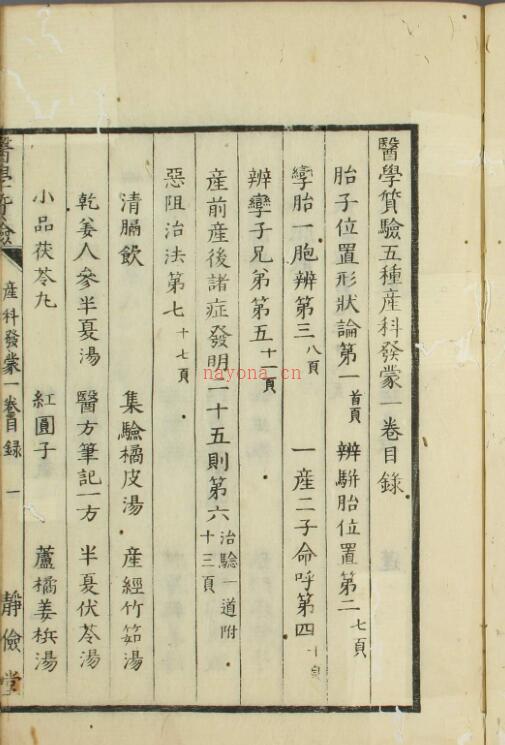 醫學質驗五種産科發蒙一卷目錄
胎子位置形狀論第一首頁 辨駢胎位置第二七頁
孿胎一胞辨第三八頁 一産二子命呼第四十頁
辨孿子兄弟第五十一頁
産前産後諸症發明二十五則第六治驗一道附十三頁
惡阻治法第七十七頁
清膈飲 集驗橘皮湯 産經竹筎湯
乾姜人參半夏湯 醫方筆記一方 半夏伏苓湯
小品茯苓丸 紅圓子 蘆橘姜梹湯
醫學質驗 産科發蒙一卷目録 一 靜儉堂
nayona.cn